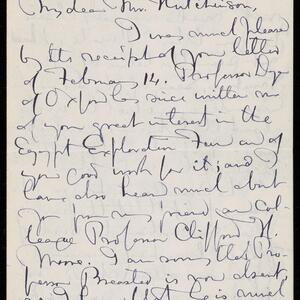 My dear Mr. Hutchinson,
I was much pleased
by the receipt of your letter
of February 14. Professor Dyer
of Oxford has since written me
of your great interest in the
Egypt Exploration Fund and of
your good work for it; and I
have also heard much about
you from my friend and col-
league Professor Clifford H.
Moore. I am sorry that Pro-
fessor Breasted is now absent,
is much